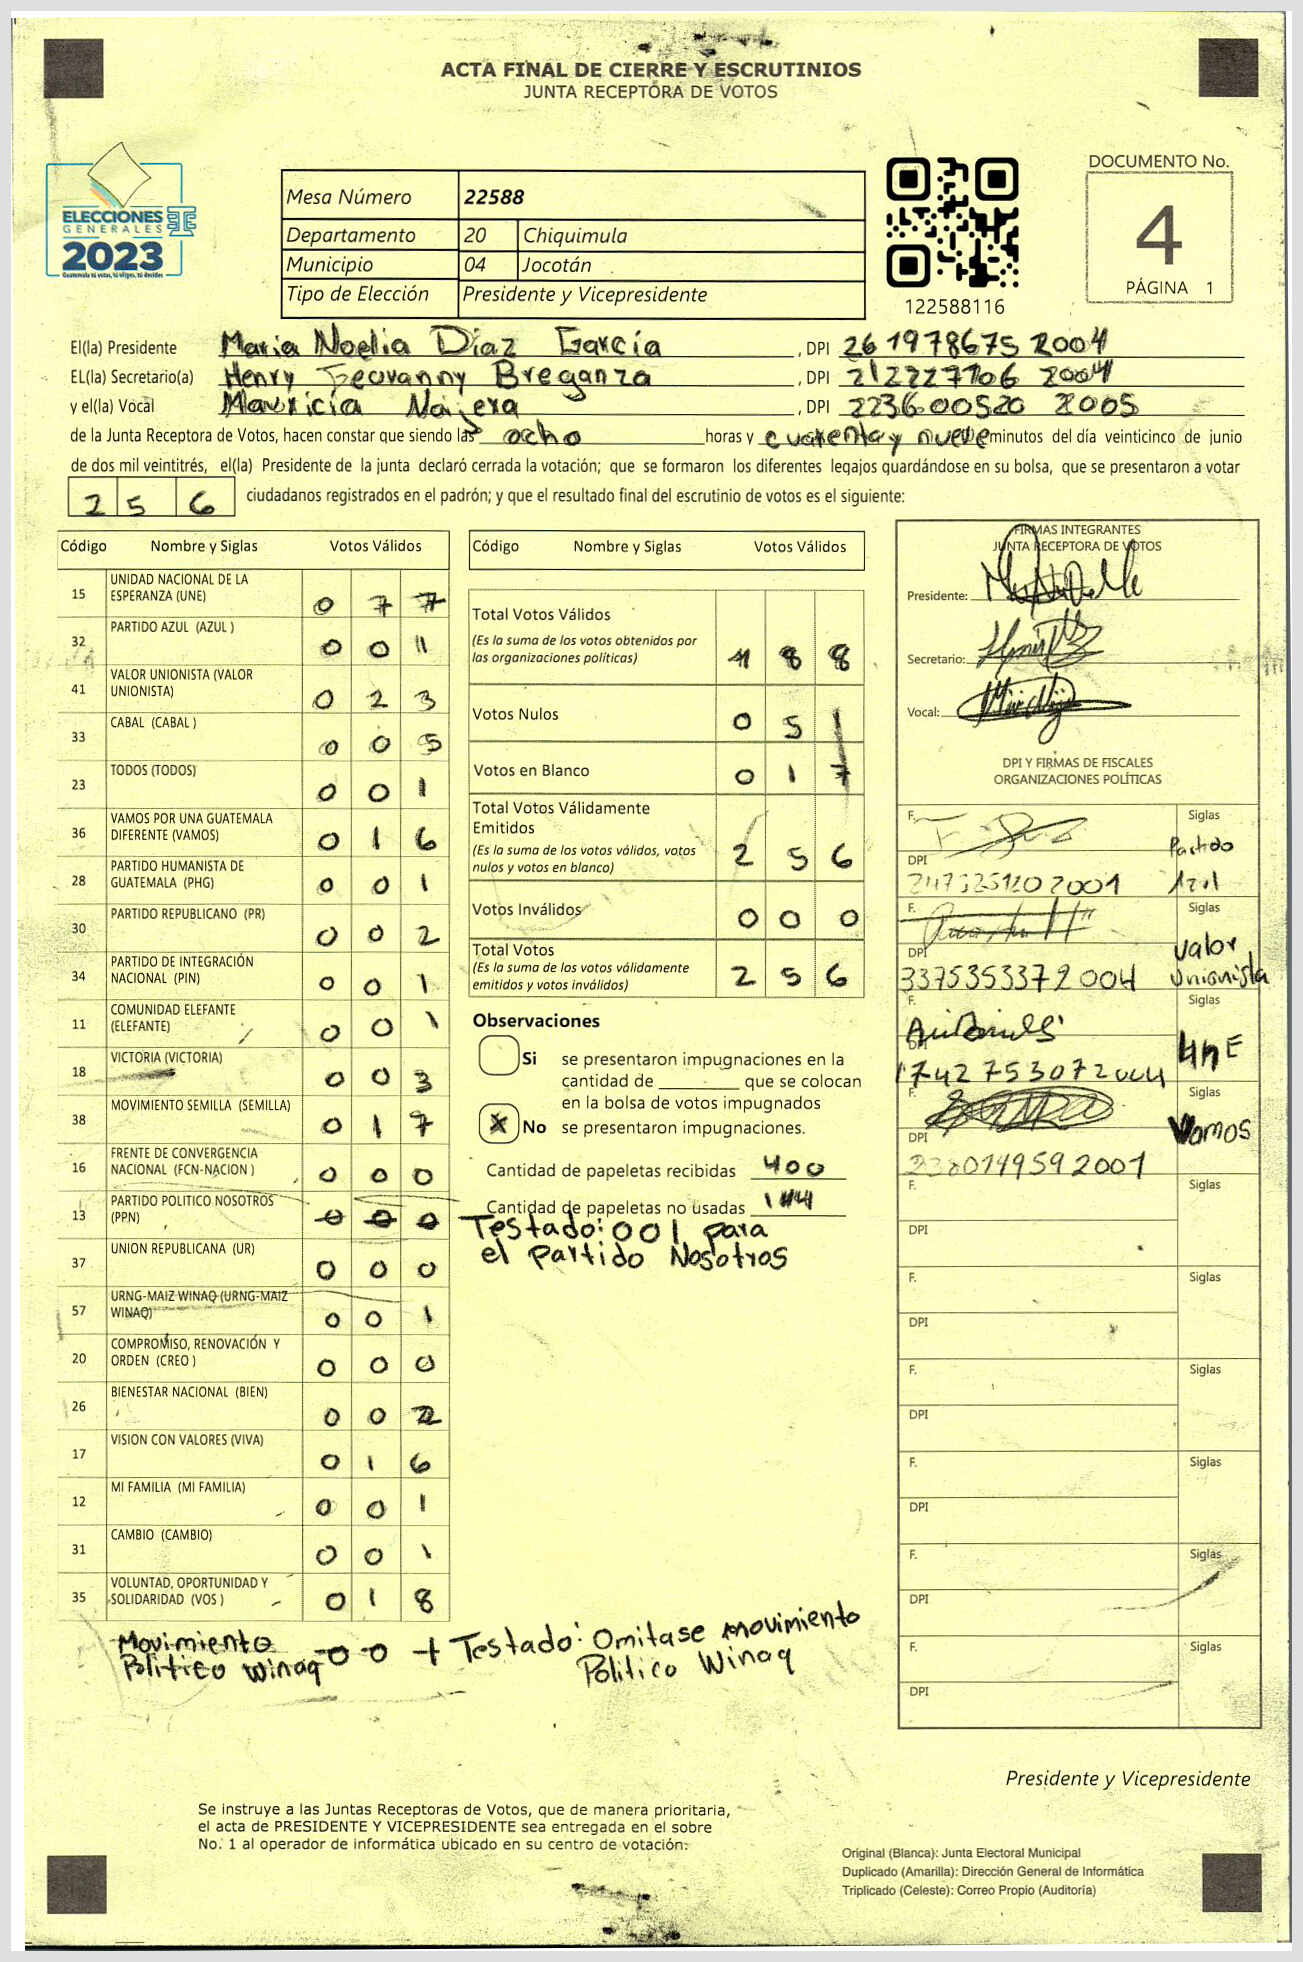 ACTA FINAL DE CIERRE Y ESCRUTINIOS
JUNTA RECEPTORA DE VOTOS
ELECCIONES
GENERALES
2023
Guatemala tú votas, tú eliges, tú decides
Mesa Número 22588
Departamento 20 Chiquimula
Municipio 04 Jocotán
Tipo de Elección Presidente y Vicepresidente
122588116
DOCUMENTO No.
4
PÁGINA 1
El(la) Presidente Maria Noelia Díaz García , DPI 261978675 2004
EL(la) Secretario(a) Henry Geovanny Breganza , DPI 212227706 2004
y el(la) Vocal Mauricia Najera , DPI 223600520 2005
de la Junta Receptora de Votos, hacen constar que siendo las ocho horas y cuarenta y nueve minutos del día veinticinco de junio
de dos mil veintitrés, el(la) Presidente de la junta declaró cerrada la votación; que se formaron los diferentes legajos guardándose en su bolsa, que se presentaron a votar
256 ciudadanos registrados en el padrón; y que el resultado final del escrutinio de votos es el siguiente:
Código Nombre y Siglas Votos Válidos
15 UNIDAD NACIONAL DE LA ESPERANZA (UNE) 0 7 7
32 PARTIDO AZUL (AZUL ) 0 0 1
41 VALOR UNIONISTA (VALOR UNIONISTA) 0 2 3
33 CABAL (CABAL ) 0 0 5
23 TODOS (TODOS) 0 0 1
36 VAMOS POR UNA GUATEMALA DIFERENTE (VAMOS) 0 1 6
28 PARTIDO HUMANISTA DE GUATEMALA (PHG) 0 0 1
30 PARTIDO REPUBLICANO (PR) 0 0 2
34 PARTIDO DE INTEGRACIÓN NACIONAL (PIN) 0 0 1
11 COMUNIDAD ELEFANTE (ELEFANTE) 0 0 1
18 VICTORIA (VICTORIA) 0 0 3
38 MOVIMIENTO SEMILLA (SEMILLA) 0 1 7
16 FRENTE DE CONVERGENCIA NACIONAL (FCN-NACION ) 0 0 0
13 PARTIDO POLITICO NOSOTROS (PPN) 0 0 0
37 UNION REPUBLICANA (UR) 0 0 0
57 URNG-MAIZ WINAQ (URNG-MAIZ WINAQ) 0 0 1
20 COMPROMISO, RENOVACIÓN Y ORDEN (CREO ) 0 0 0
26 BIENESTAR NACIONAL (BIEN) 0 0 2
17 VISION CON VALORES (VIVA) 0 1 6
12 MI FAMILIA (MI FAMILIA) 0 0 1
31 CAMBIO (CAMBIO) 0 0 1
35 VOLUNTAD, OPORTUNIDAD Y SOLIDARIDAD (VOS ) 0 1 8
Movimiento
Político Winaq 0 0 1 Testado: Omitase movimiento
Político Winaq
Código Nombre y Siglas Votos Válidos
Total Votos Válidos
(Es la suma de los votos obtenidos por
las organizaciones políticas) 1 8 8
Votos Nulos 0 5 1
Votos en Blanco 0 1 7
Total Votos Válidamente
Emitidos
(Es la suma de los votos válidos, votos
nulos y votos en blanco) 2 5 6
Votos Inválidos 0 0 0
Total Votos
(Es la suma de los votos válidamente
emitidos y votos inválidos) 2 5 6
Observaciones
Si se presentaron impugnaciones en la
cantidad de ________ que se colocan
en la bolsa de votos impugnados
X No se presentaron impugnaciones.
Cantidad de papeletas recibidas 400
Cantidad de papeletas no usadas 144
Testado: 001 para
el Partido Nosotros
FIRMAS INTEGRANTES
JUNTA RECEPTORA DE VOTOS
Presidente:
Secretario:
Vocal:
DPI Y FIRMAS DE FISCALES
ORGANIZACIONES POLÍTICAS
F. Siglas
Partido
Azul
DPI
F. Siglas
Valor
Unionista
DPI
3375353372004
F. Siglas
UNE
DPI
1742753072004
F. Siglas
Vamos
DPI
2380149592001
F. Siglas
DPI
F. Siglas
DPI
F. Siglas
DPI
F. Siglas
DPI
F. Siglas
DPI
F. Siglas
DPI
Presidente y Vicepresidente
Se instruye a las Juntas Receptoras de Votos, que de manera prioritaria,
el acta de PRESIDENTE Y VICEPRESIDENTE sea entregada en el sobre
No. 1 al operador de informática ubicado en su centro de votación.
Original (Blanca): Junta Electoral Municipal
Duplicado (Amarilla): Dirección General de Informática
Triplicado (Celeste): Correo Propio (Auditoría)